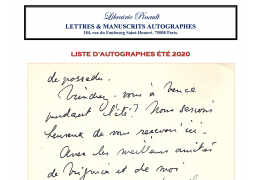 Librairie Pinault
LETTRES & MANUSCRITS AUTOGRAPHES
184, rue du Faubourg Saint-Honoré. 75008 Paris.
LISTE D'AUTOGRAPHES ÉTÉ 2020
de posseder.
Viendrez-vous à Vence
pendant l'été? Nous serions
heureux de vous recevoir ici.
Avec les meilleures amitiés
de Virginia et de moi